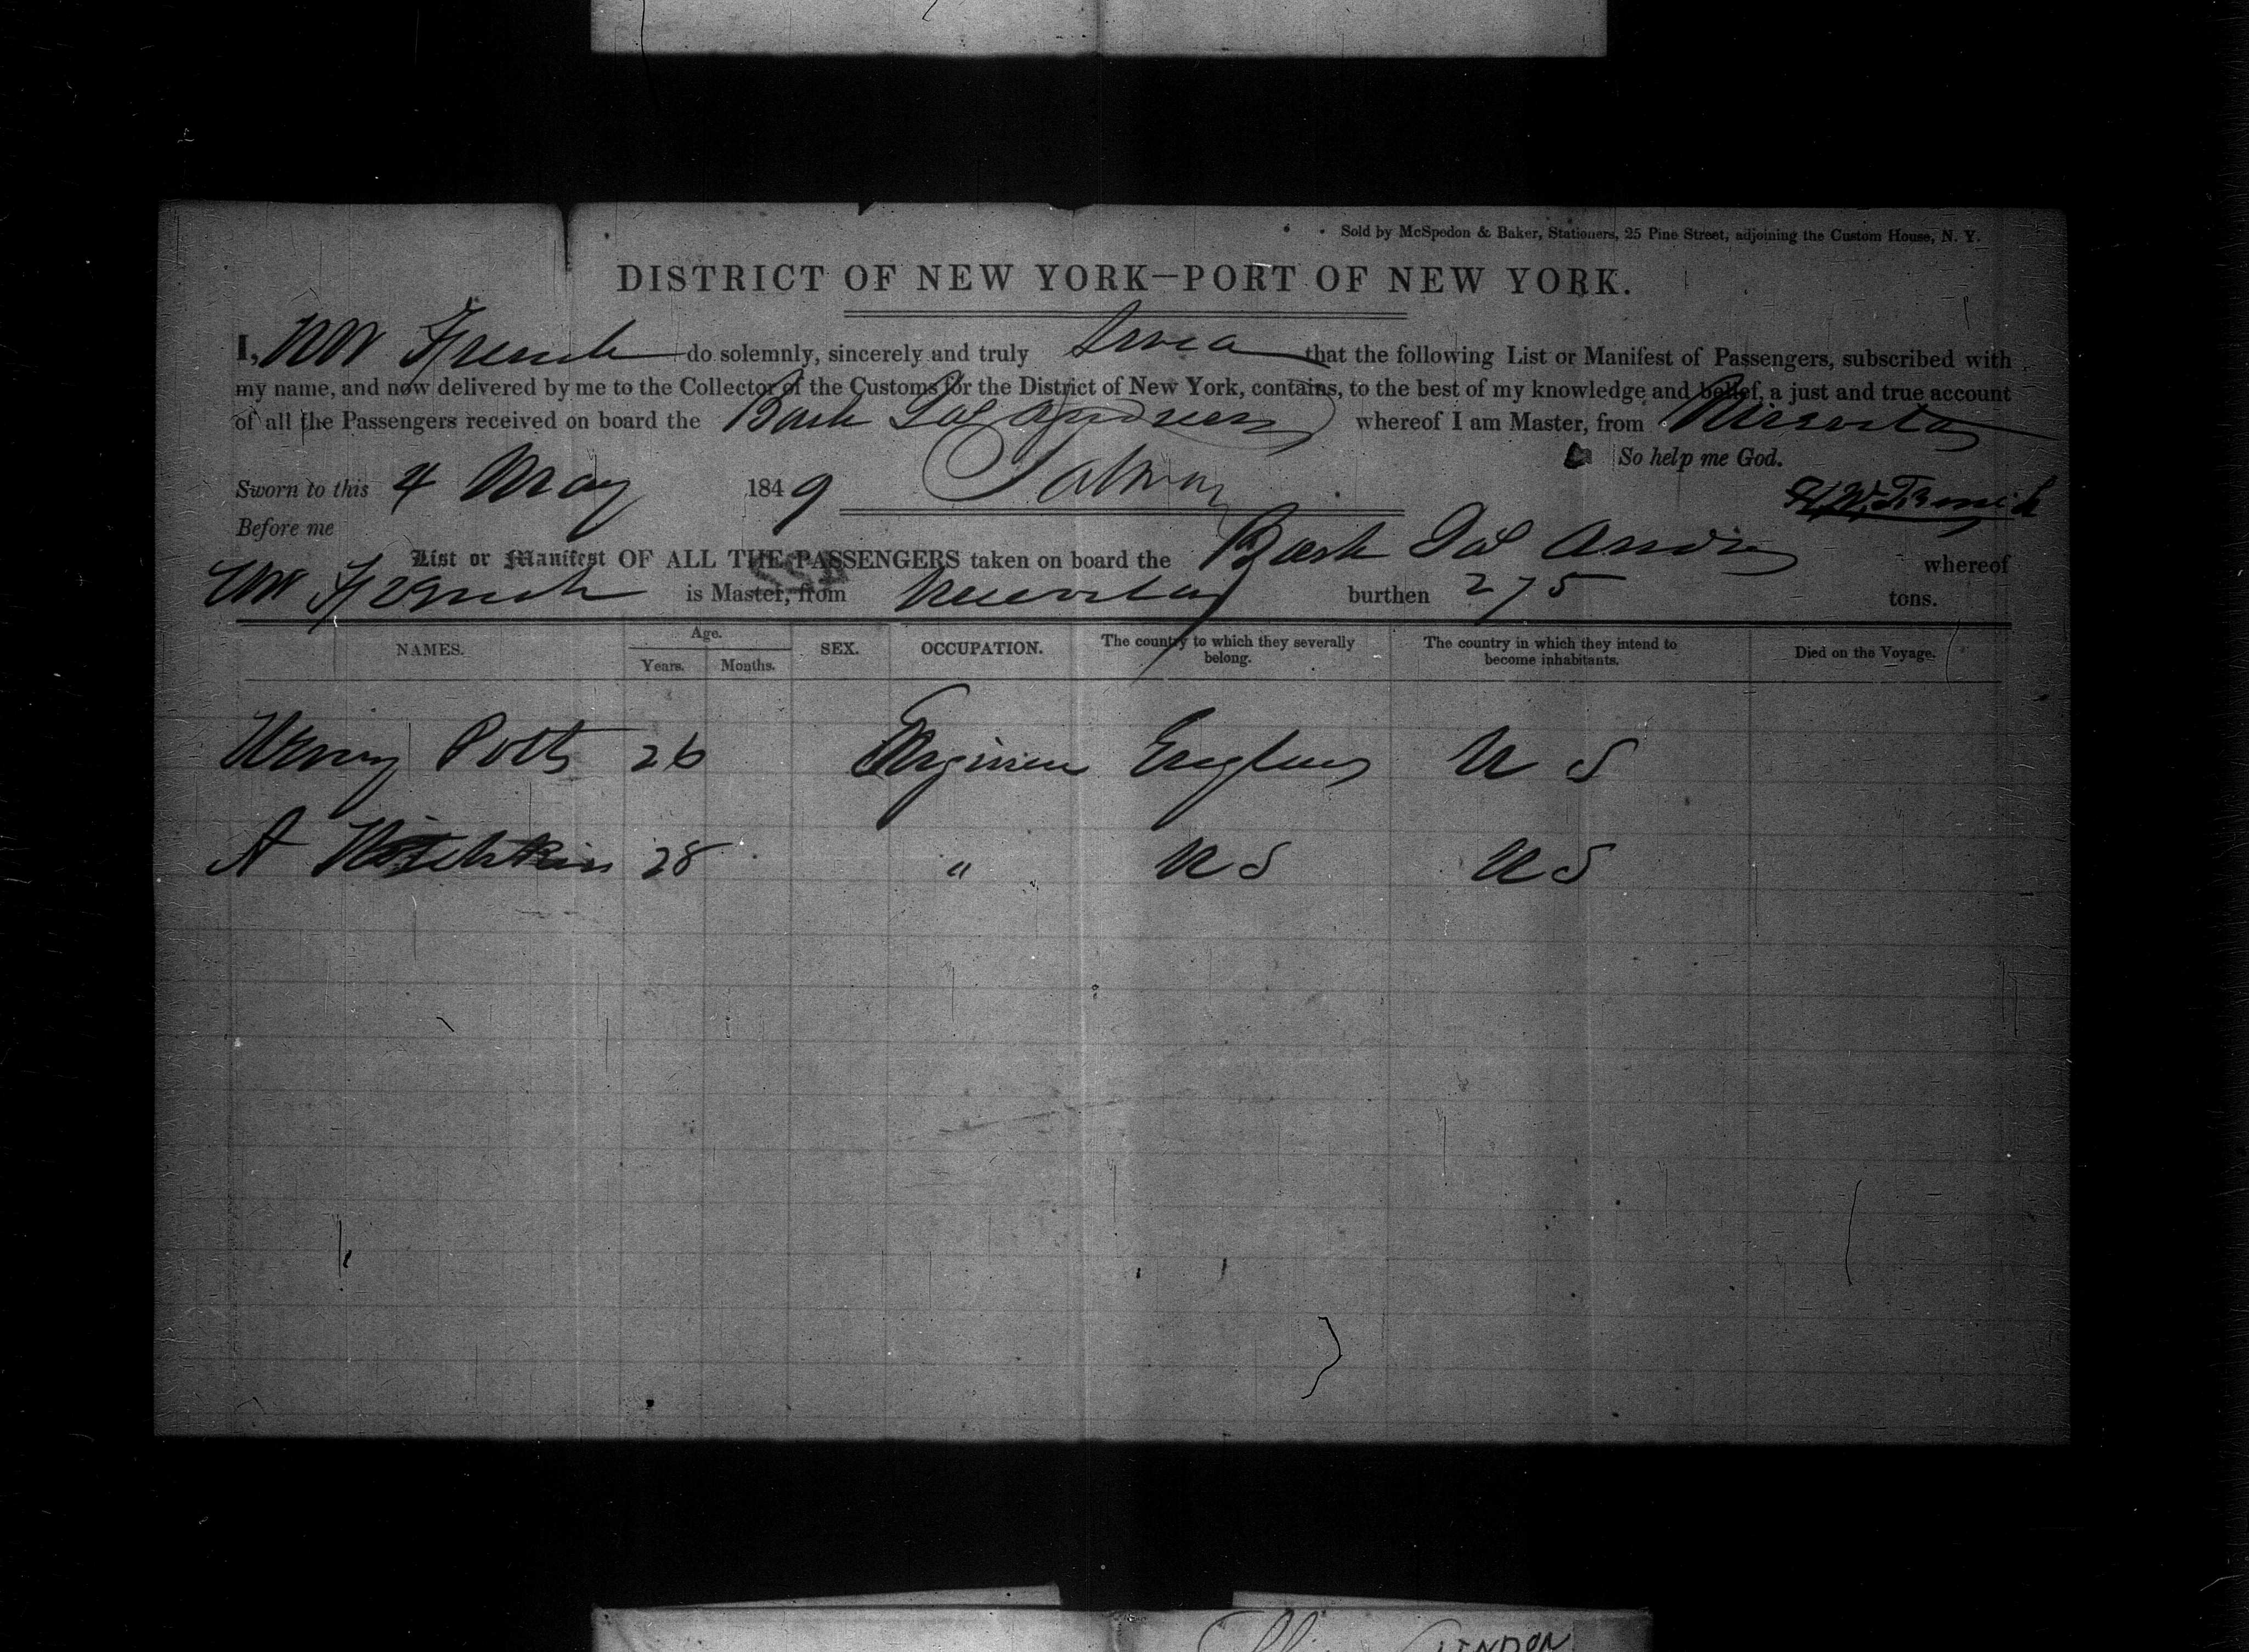 Sold by McSpedon & Baker, Stationers, 25 Pine Street, adjoining the Custom House, N. Y.
DISTRICT OF NEW YORK—PORT OF NEW YORK.
I, French do solemnly, sincerely and truly swear that the following List or Manifest of Passengers, subscribed with
my name, and now delivered by me to the Collector of the Customs for the District of New York, contains, to the best of my knowledge and belief, a just and true account
of all the Passengers received on board the Bark whereof I am Master, from
So help me God.
Sworn to this 4 May 1849
Before me
List or Manifest OF ALL THE PASSENGERS taken on board the Bark whereof
French is Master, from burthen 275 tons.
NAMES. Age. Years. Months. SEX. OCCUPATION. The country to which they severally belong. The country in which they intend to become inhabitants. Died on the Voyage.
Henry Potts 26 Engineer England U S
A 28 " U S U S
LINDON